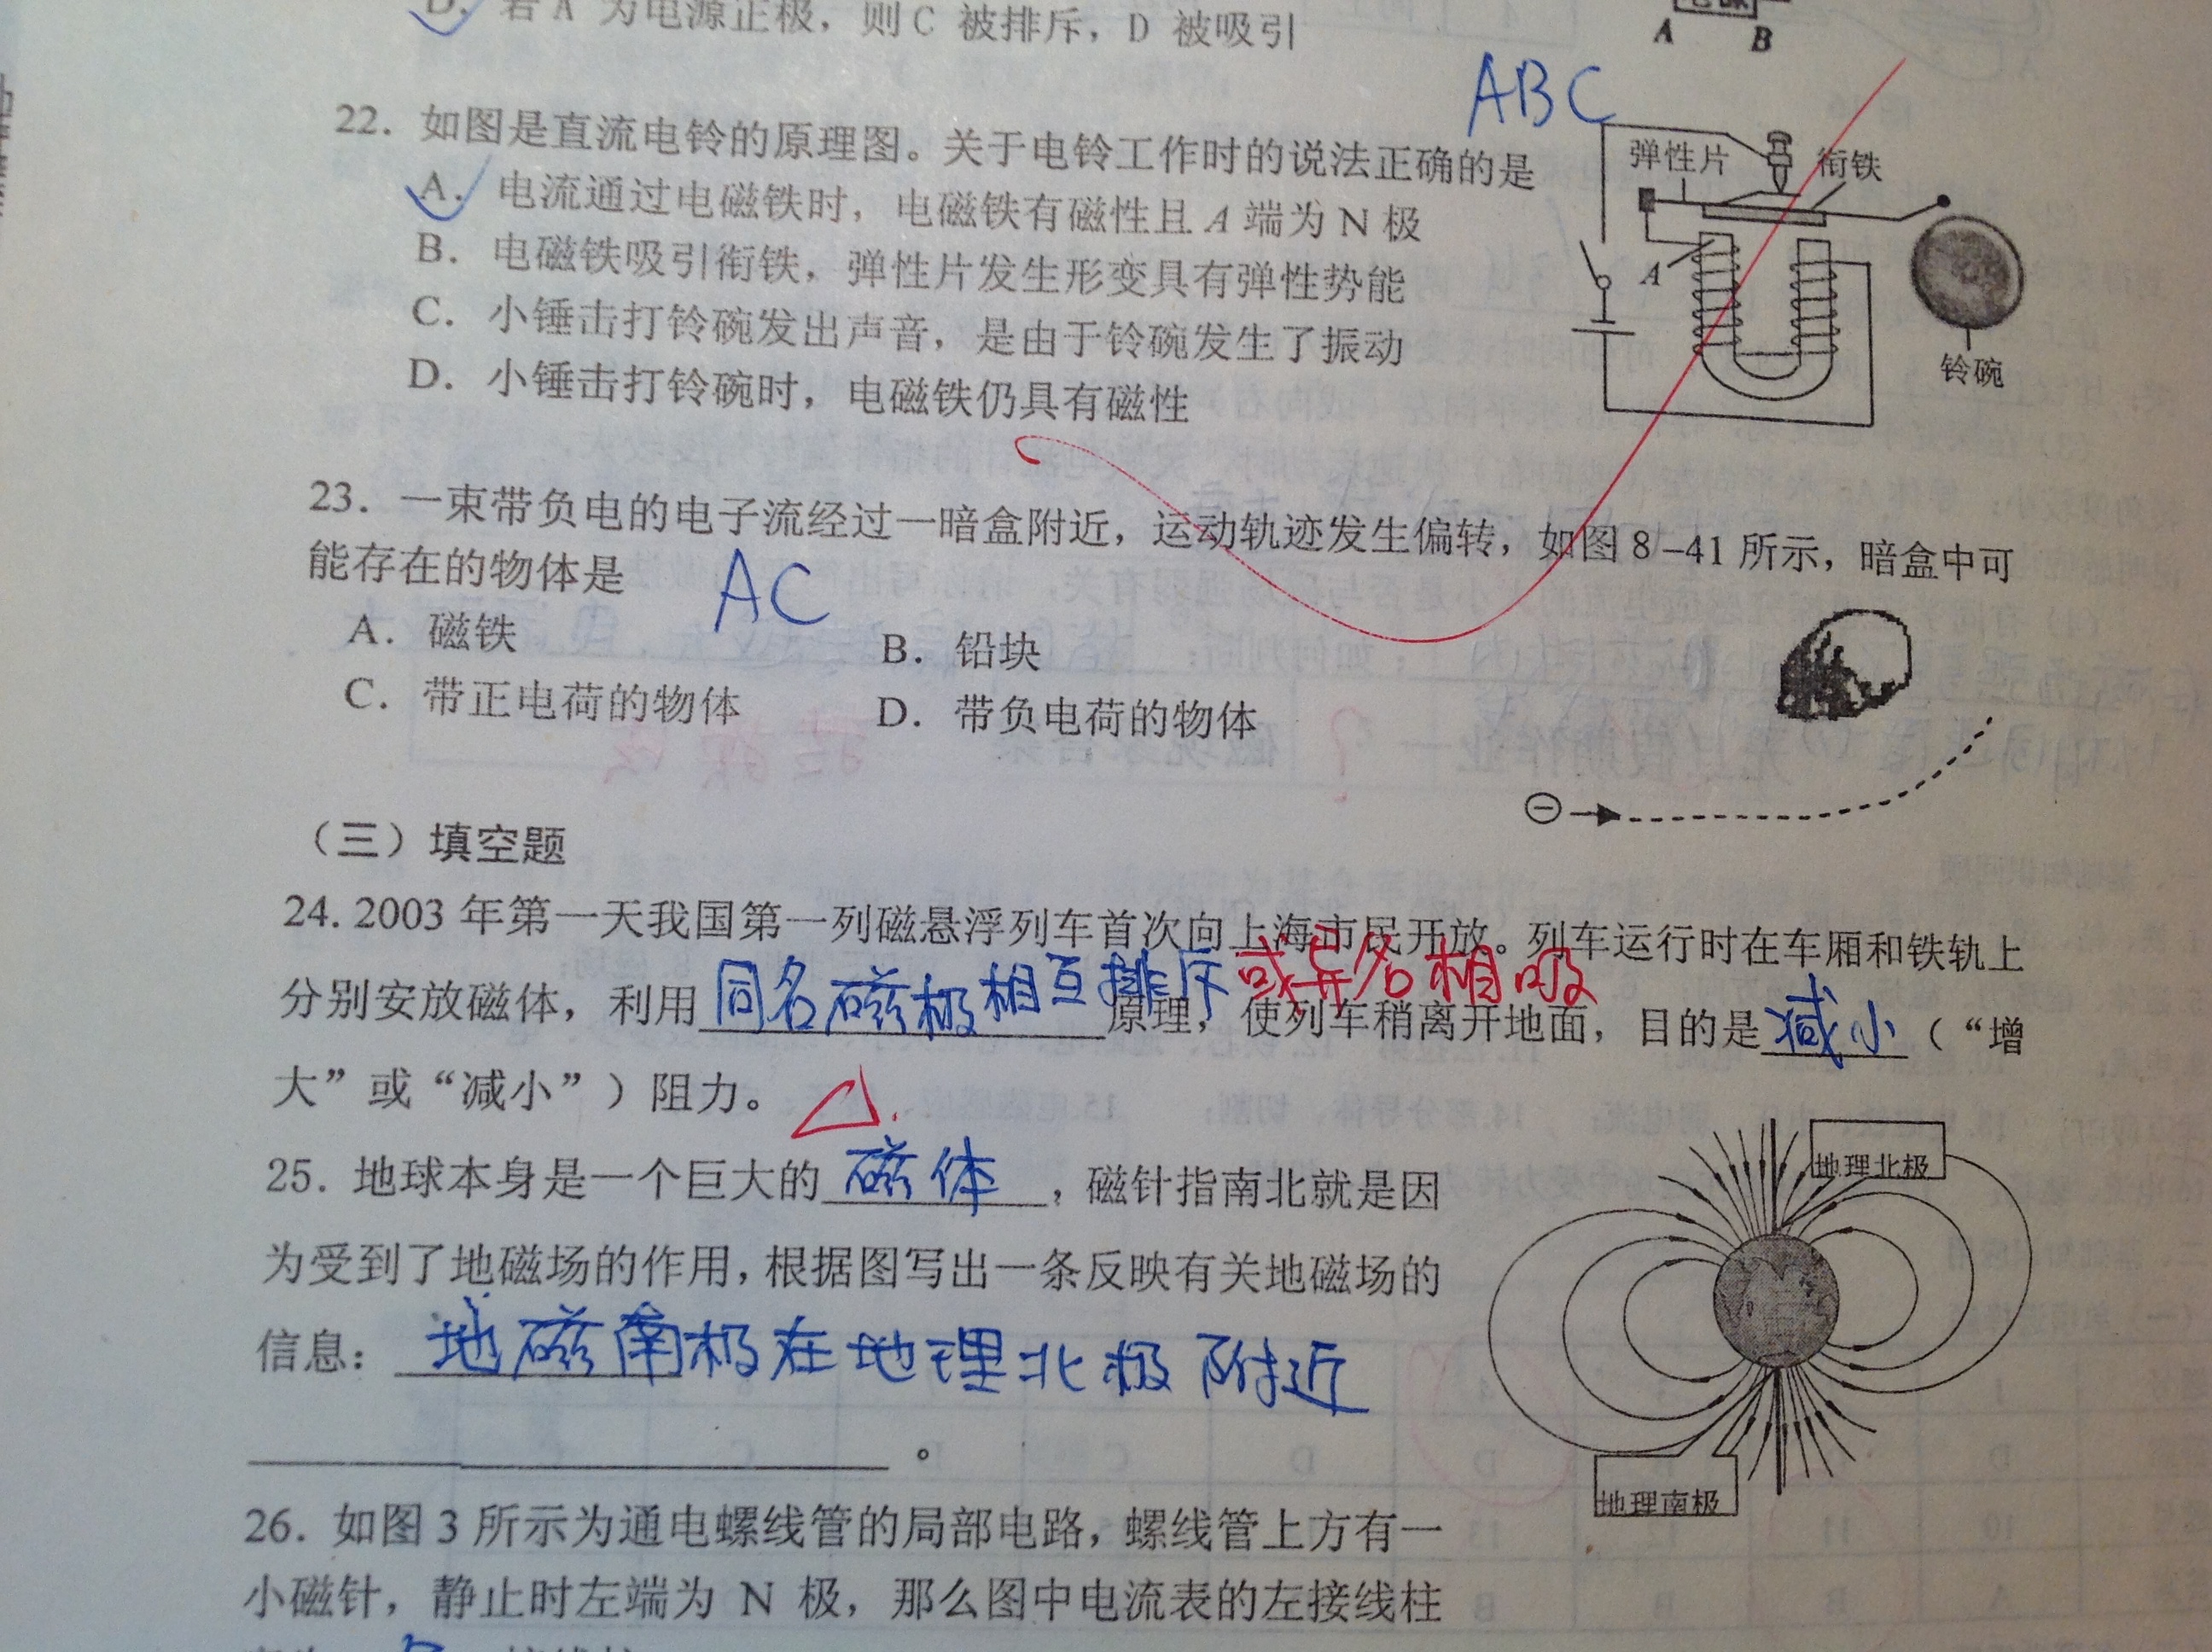 D. 若 A 为电源正极，则 C 被排斥，D 被吸引
A B
22. 如图是直流电铃的原理图。关于电铃工作时的说法正确的是
ABC
A. 电流通过电磁铁时，电磁铁有磁性且 A 端为 N 极
B. 电磁铁吸引衔铁，弹性片发生形变具有弹性势能
C. 小锤击打铃碗发出声音，是由于铃碗发生了振动
D. 小锤击打铃碗时，电磁铁仍具有磁性
弹性片
衔铁
A
铃碗
23. 一束带负电的电子流经过一暗盒附近，运动轨迹发生偏转，如图 8-41 所示，暗盒中可
能存在的物体是 AC
A. 磁铁 B. 铅块
C. 带正电荷的物体 D. 带负电荷的物体
（三）填空题
24. 2003 年第一天我国第一列磁悬浮列车首次向上海市民开放。列车运行时在车厢和铁轨上
或异名相吸
分别安放磁体，利用同名磁极相互排斥原理，使列车稍离开地面，目的是减小（“增
大”或“减小”）阻力。
25. 地球本身是一个巨大的磁体，磁针指南北就是因
为受到了地磁场的作用，根据图写出一条反映有关地磁场的
信息：地磁南极在地理北极附近
。
地理北极
地理南极
26. 如图 3 所示为通电螺线管的局部电路，螺线管上方有一
小磁针，静止时左端为 N 极，那么图中电流表的左接线柱